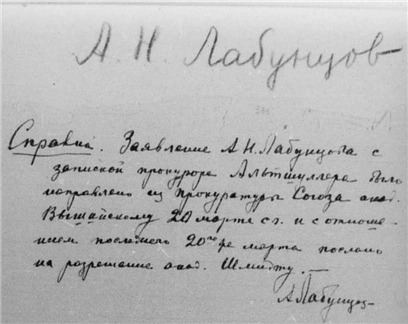 А. Н. Лабунцов
Справка. Заявление А. Н. Лабунцова с
запиской прокурора Альтшуллера было
направлено из Прокуратуры Союза акад.
Вышинскому 20 марта с.г. и с отноше-
нием последнего 20го же марта послано
на разрешение акад. Шмидту. —
А Лабунцов